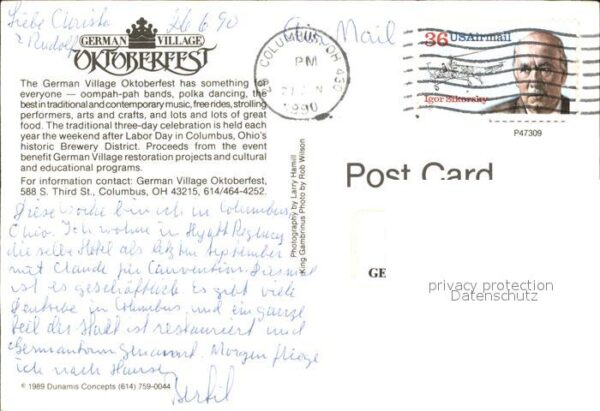 Liebe Christa 26.6.90
+ Rudolf
Air Mail
GERMAN VILLAGE
OKTOBERFEST
The German Village Oktoberfest has something for
everyone — oompah-pah bands, polka dancing, the
best in traditional and contemporary music, free rides, strolling
performers, arts and crafts, and lots and lots of great
food. The traditional three-day celebration is held each
year the weekend after Labor Day in Columbus, Ohio's
historic Brewery District. Proceeds from the event
benefit German Village restoration projects and cultural
and educational programs.
For information contact: German Village Oktoberfest,
588 S. Third St., Columbus, OH 43215, 614/464-4252.
Diese Woche bin ich in Columbus
Ohio. Ich wohne in Hyatt Regency
dieselbe Hotel als letzten September
mit Claude für Convention. Diesmal
ist es geschäftlich. Es gibt viele
Deutsche in Columbus und ein ganze
teil des Stadt ist restauriert und
Germantown genannt. Morgen fliege
ich nach Hause.
© 1989 Dunamis Concepts (614) 759-0044
Photography by Larry Hamill
King Gambrinus Photo by Rob Wilson
COLUMBUS, OH 430
PM
1990
36 USAirmail
Igor Sikorsky
P47309
Post Card
GE
privacy protection
Datenschutz